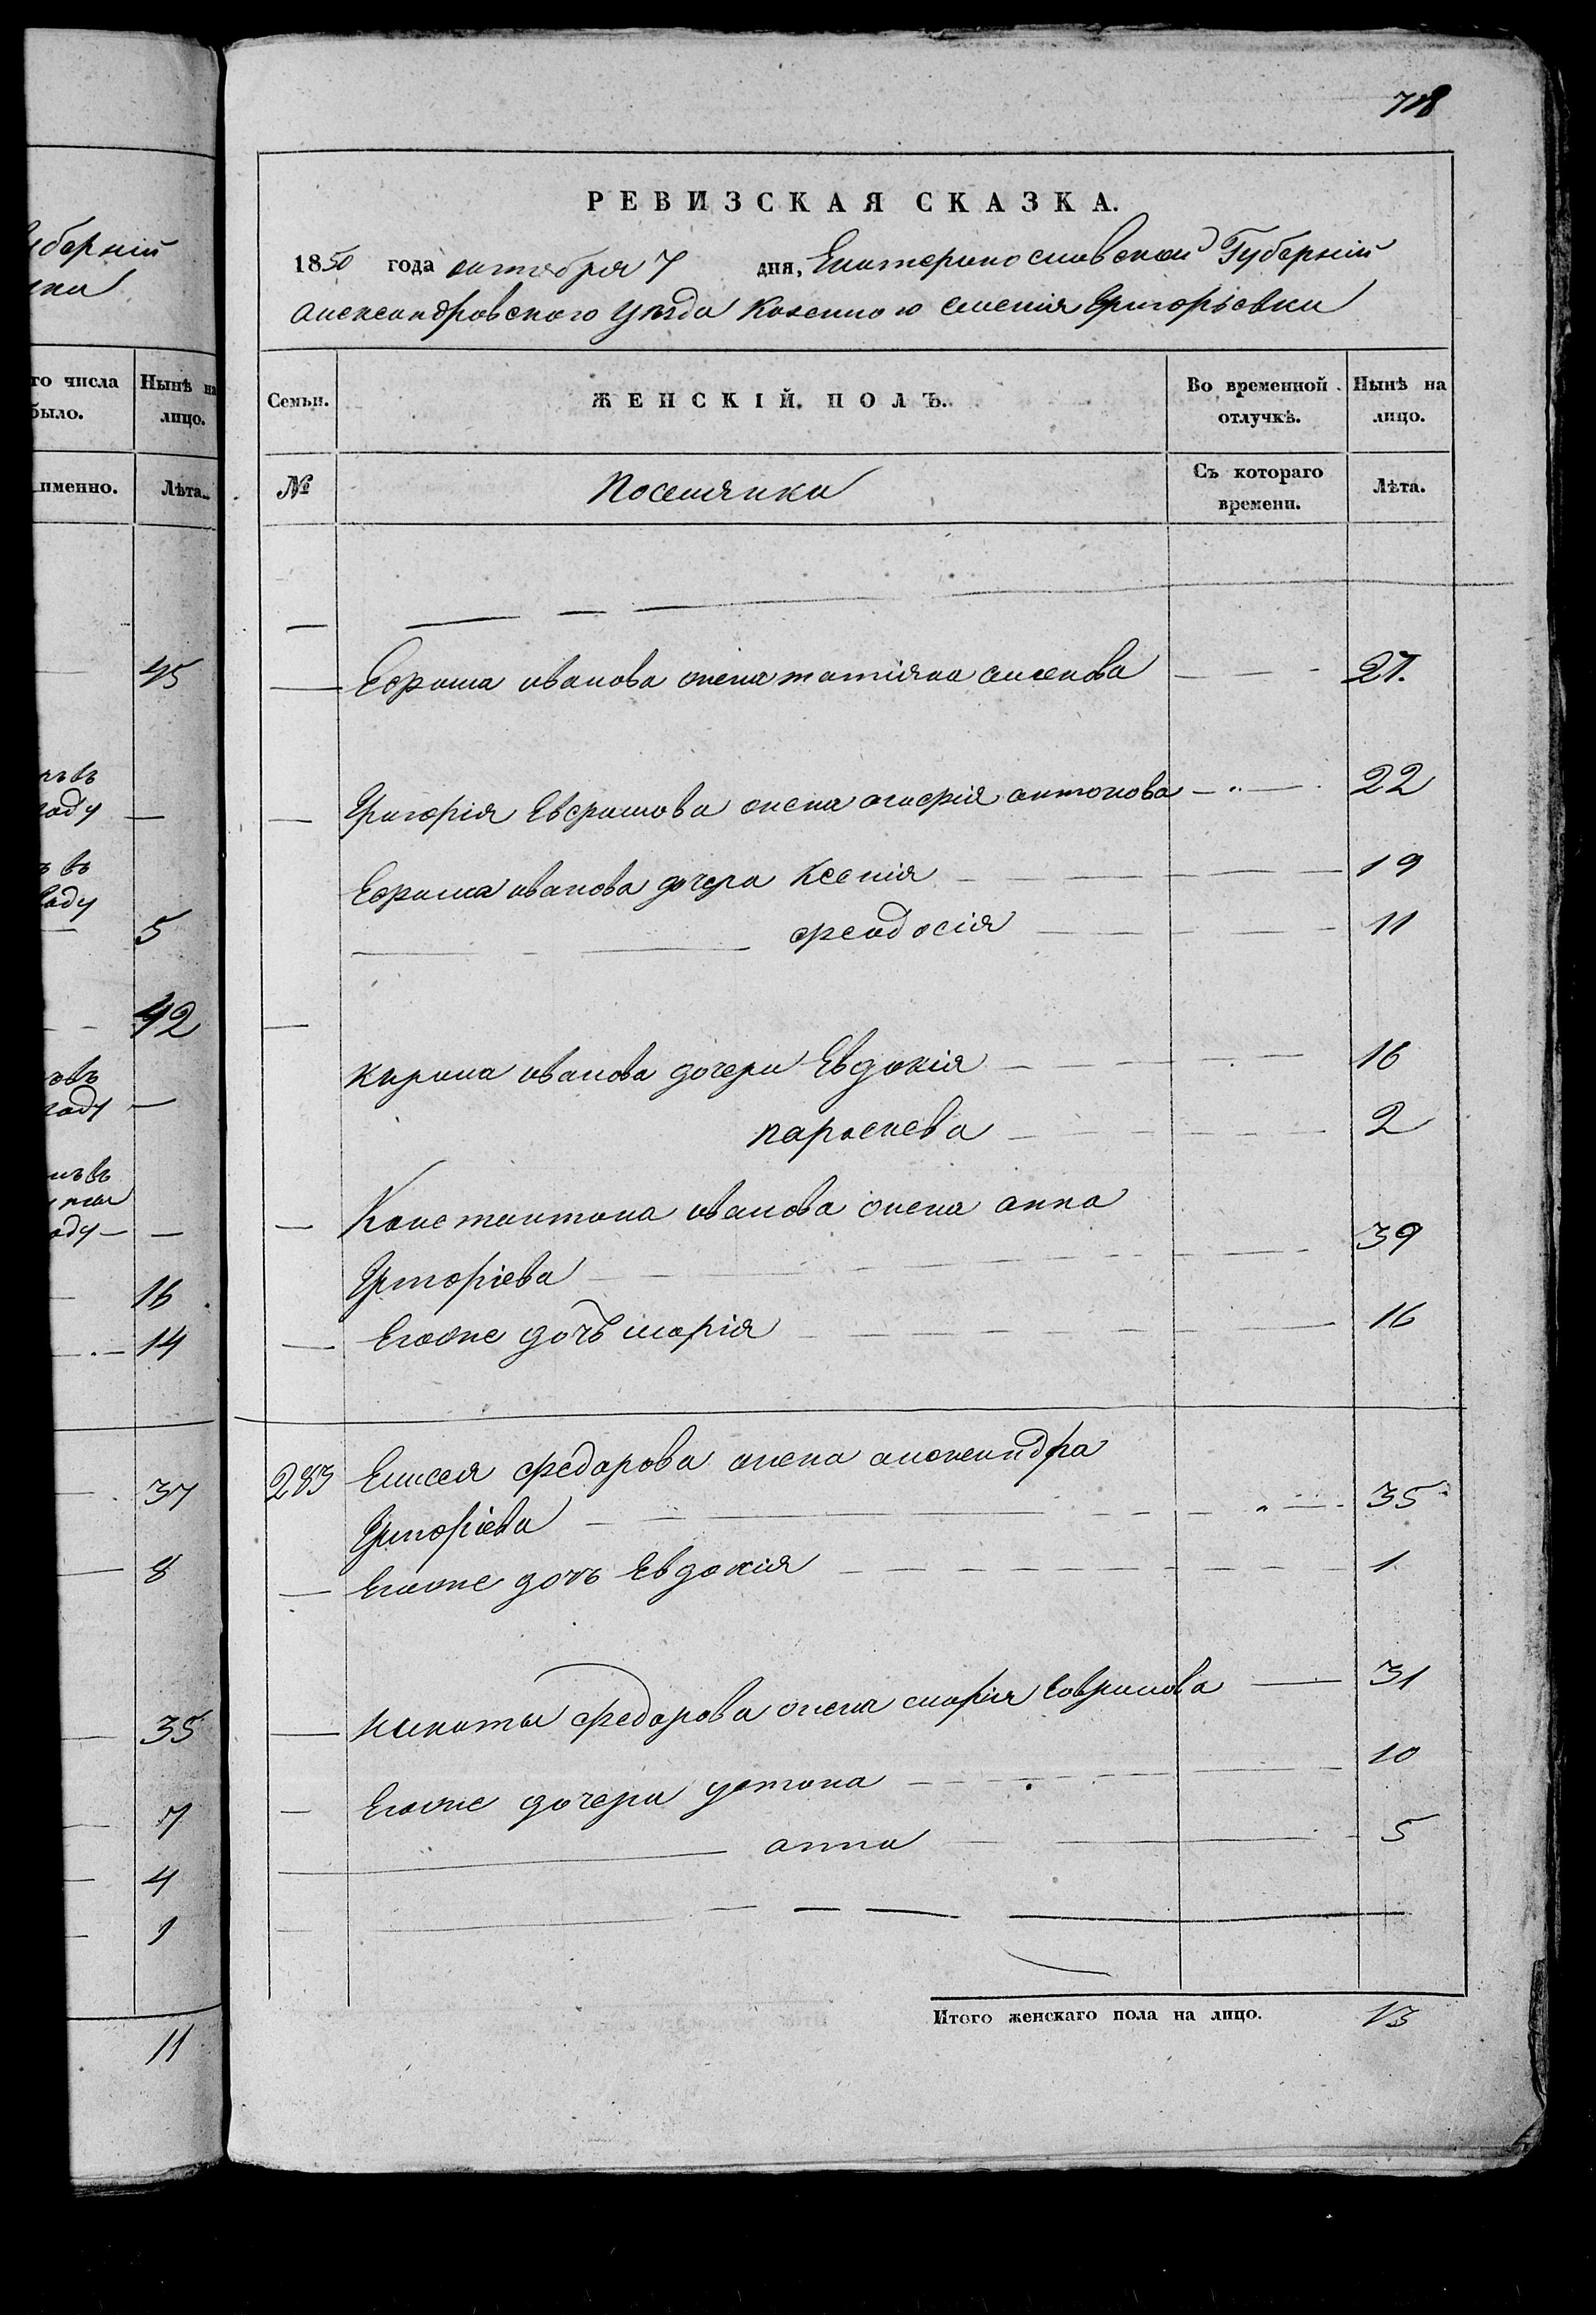 718
РЕВИЗСКАЯ СКАЗКА.
1850 года октября 7 дня, Екатеринославской Губерніи
александровского уезда Казенного селенія Григорьевки
Семьи.
ЖЕНСКІЙ ПОЛЪ.
Во временной отлучкѣ.
Нынѣ на лицо.
№
Поселянки
Съ котораго времени.
Лѣта.
Ефрима иванова жена татіяна 27.
Григорія Ефримова жена антонова 22
Ефрима иванова дочери Ксенія 19
феодосія 11
иванова дочери Евдокія 16
парескева 2
Константина иванова жена анна
Григоріева 39
Егоже дочь марія 16
283 Елисея федорова жена александра
Григоріева 35
Егоже дочь Евдокія 1
Никиты федорова жена марія 31
Егоже дочери устина 10
анна 5
Итого женскаго пола на лицо. 13
уберніи
го числа было.
Нынѣ на лицо.
именно.
Лѣта.
45
году
5
42
году
16
14
37
8
35
7
4
1
11